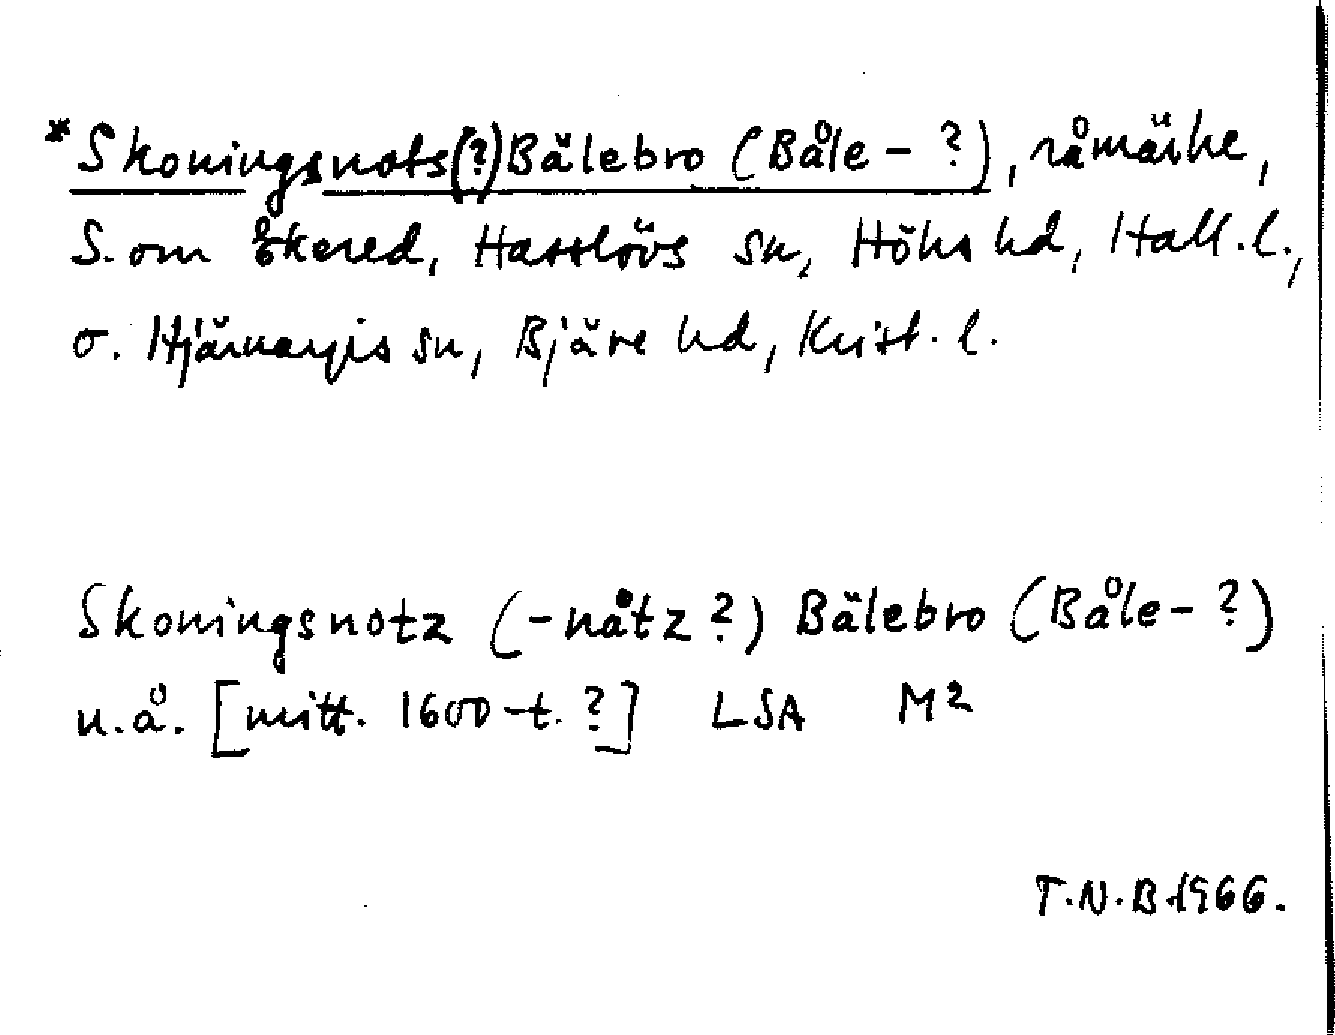 *Skoningsnots(?)Bälebro (Båle- ?), råmärke,
S. om Åkered, Hasslövs sn, Höks hd, Hall. l.,
o. Hjärnarps sn, Bjäre hd, Krist. l.
Skoningsnotz (-nåtz?) Bälebro (Båle- ?)
u.å. [mitt. 1600-t. ?] LSA M2
T.N.B 1966.